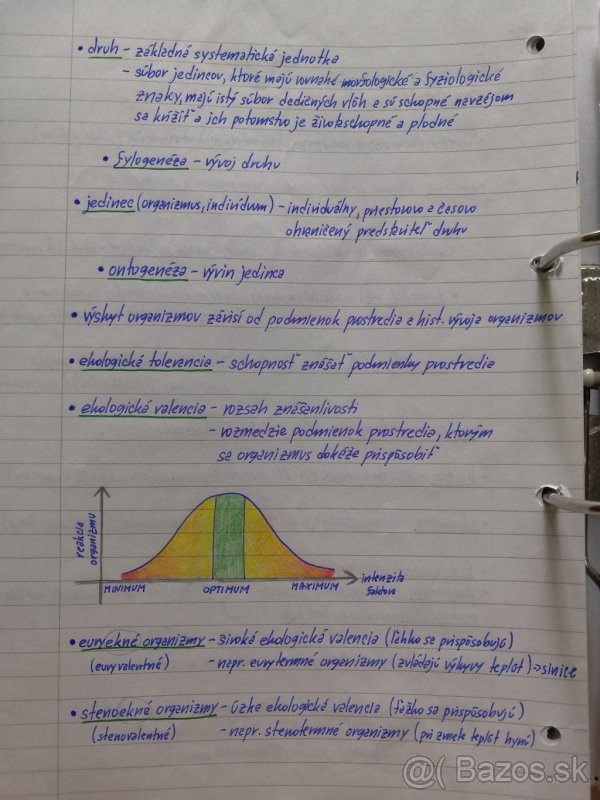 • druh - základná systematická jednotka
- súbor jedincov, ktoré majú rovnaké morfologické a fyziologické
znaky, majú istý súbor dedičných vlôh a sú schopné navzájom
sa krížiť a ich potomstvo je životaschopné a plodné
• fylogenéza - vývoj druhu
• jedinec (organizmus, indivíduum) - individuálny, priestorovo a časovo
ohraničený predstaviteľ druhu
• ontogenéza - vývin jedinca
• výskyt organizmov závisí od podmienok prostredia a hist. vývoja organizmov
• ekologická tolerancia - schopnosť znášať podmienky prostredia
• ekologická valencia - rozsah znášanlivosti
- rozmedzie podmienok prostredia, ktorým
sa organizmus dokáže prispôsobiť
reakcia
organizmu
MINIMUM OPTIMUM MAXIMUM
intenzita
faktora
• euryekné organizmy - široká ekologická valencia (ľahko sa prispôsobujú)
(euryvalentné) - napr. eurytermné organizmy (zvládajú výkyvy teplôt) → sinice
• stenoekné organizmy - úzka ekologická valencia (ťažko sa prispôsobujú)
(stenovalentné) - napr. stenotermné organizmy (pri zmene teplôt hynú)
@( Bazos.sk